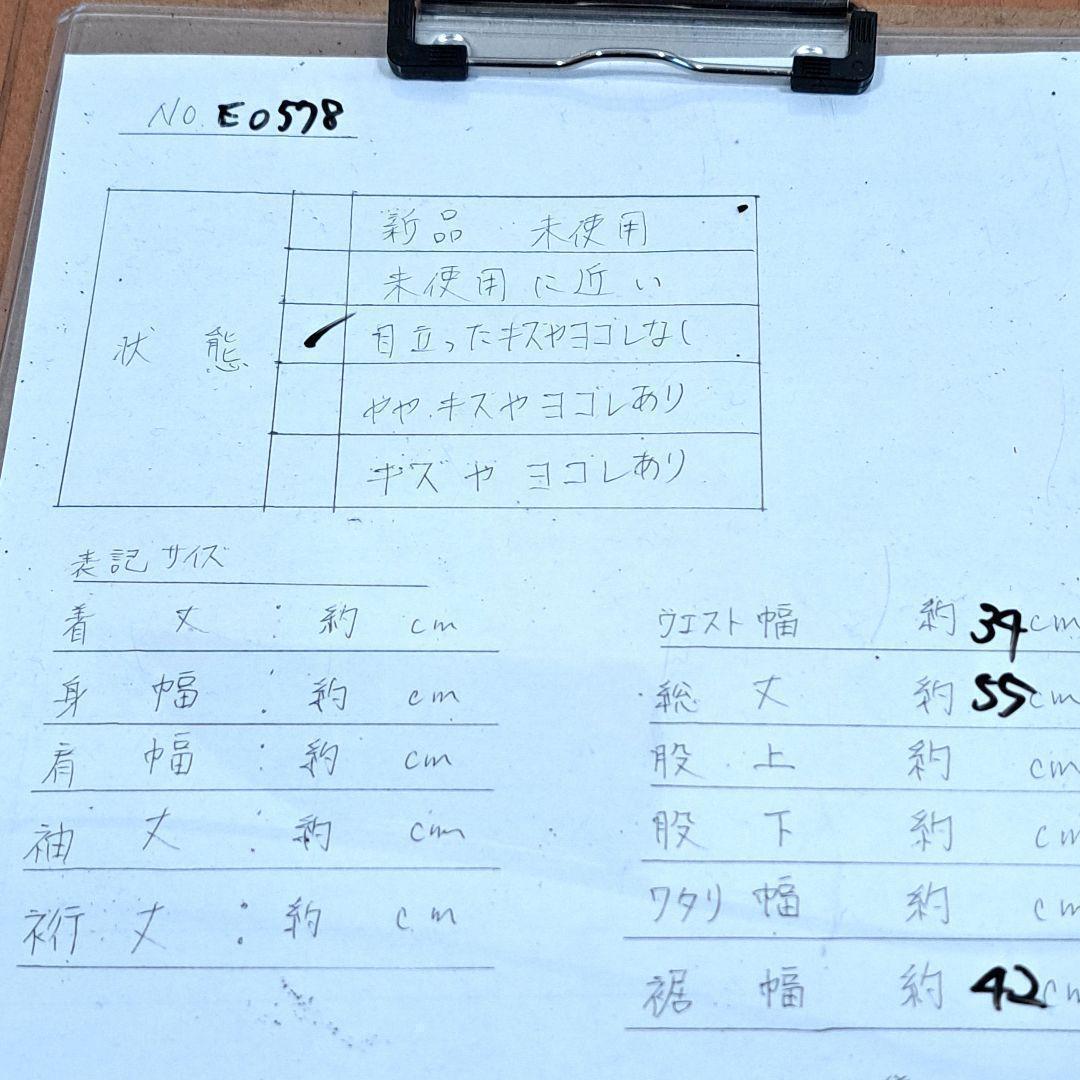 NO. E0578
状態
新品 未使用
未使用に近い
目立ったキズやヨゴレなし
やや、キズやヨゴレあり
キズやヨゴレあり
表記サイズ
着丈：約 cm
身幅：約 cm
肩幅：約 cm
袖丈：約 cm
裄丈：約 cm
ウエスト幅 約34cm
総丈 約55cm
股上 約 cm
股下 約 cm
ワタリ幅 約 cm
裾幅 約42cm